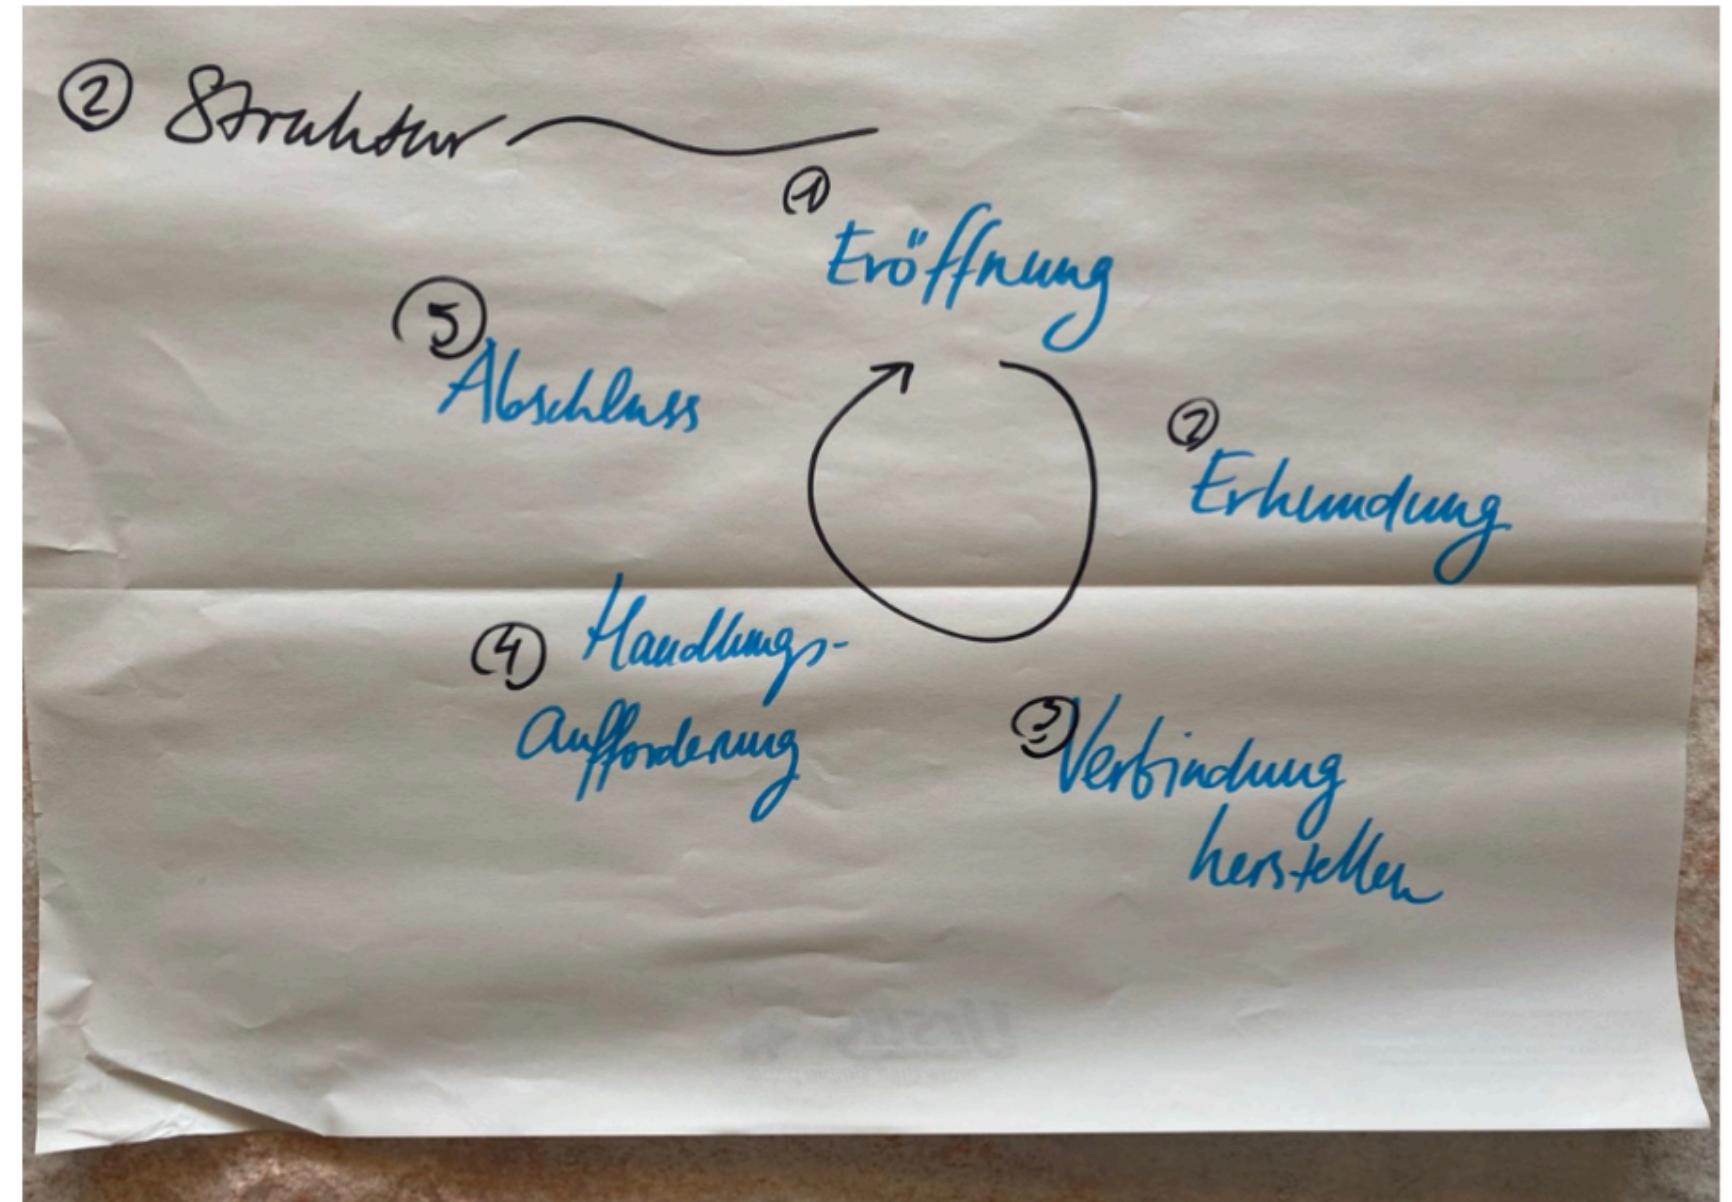 ② Struktur
①
Eröffnung
②
Erkundung
③ Verbindung
herstellen
④ Handlungs-
aufforderung
⑤
Abschluss